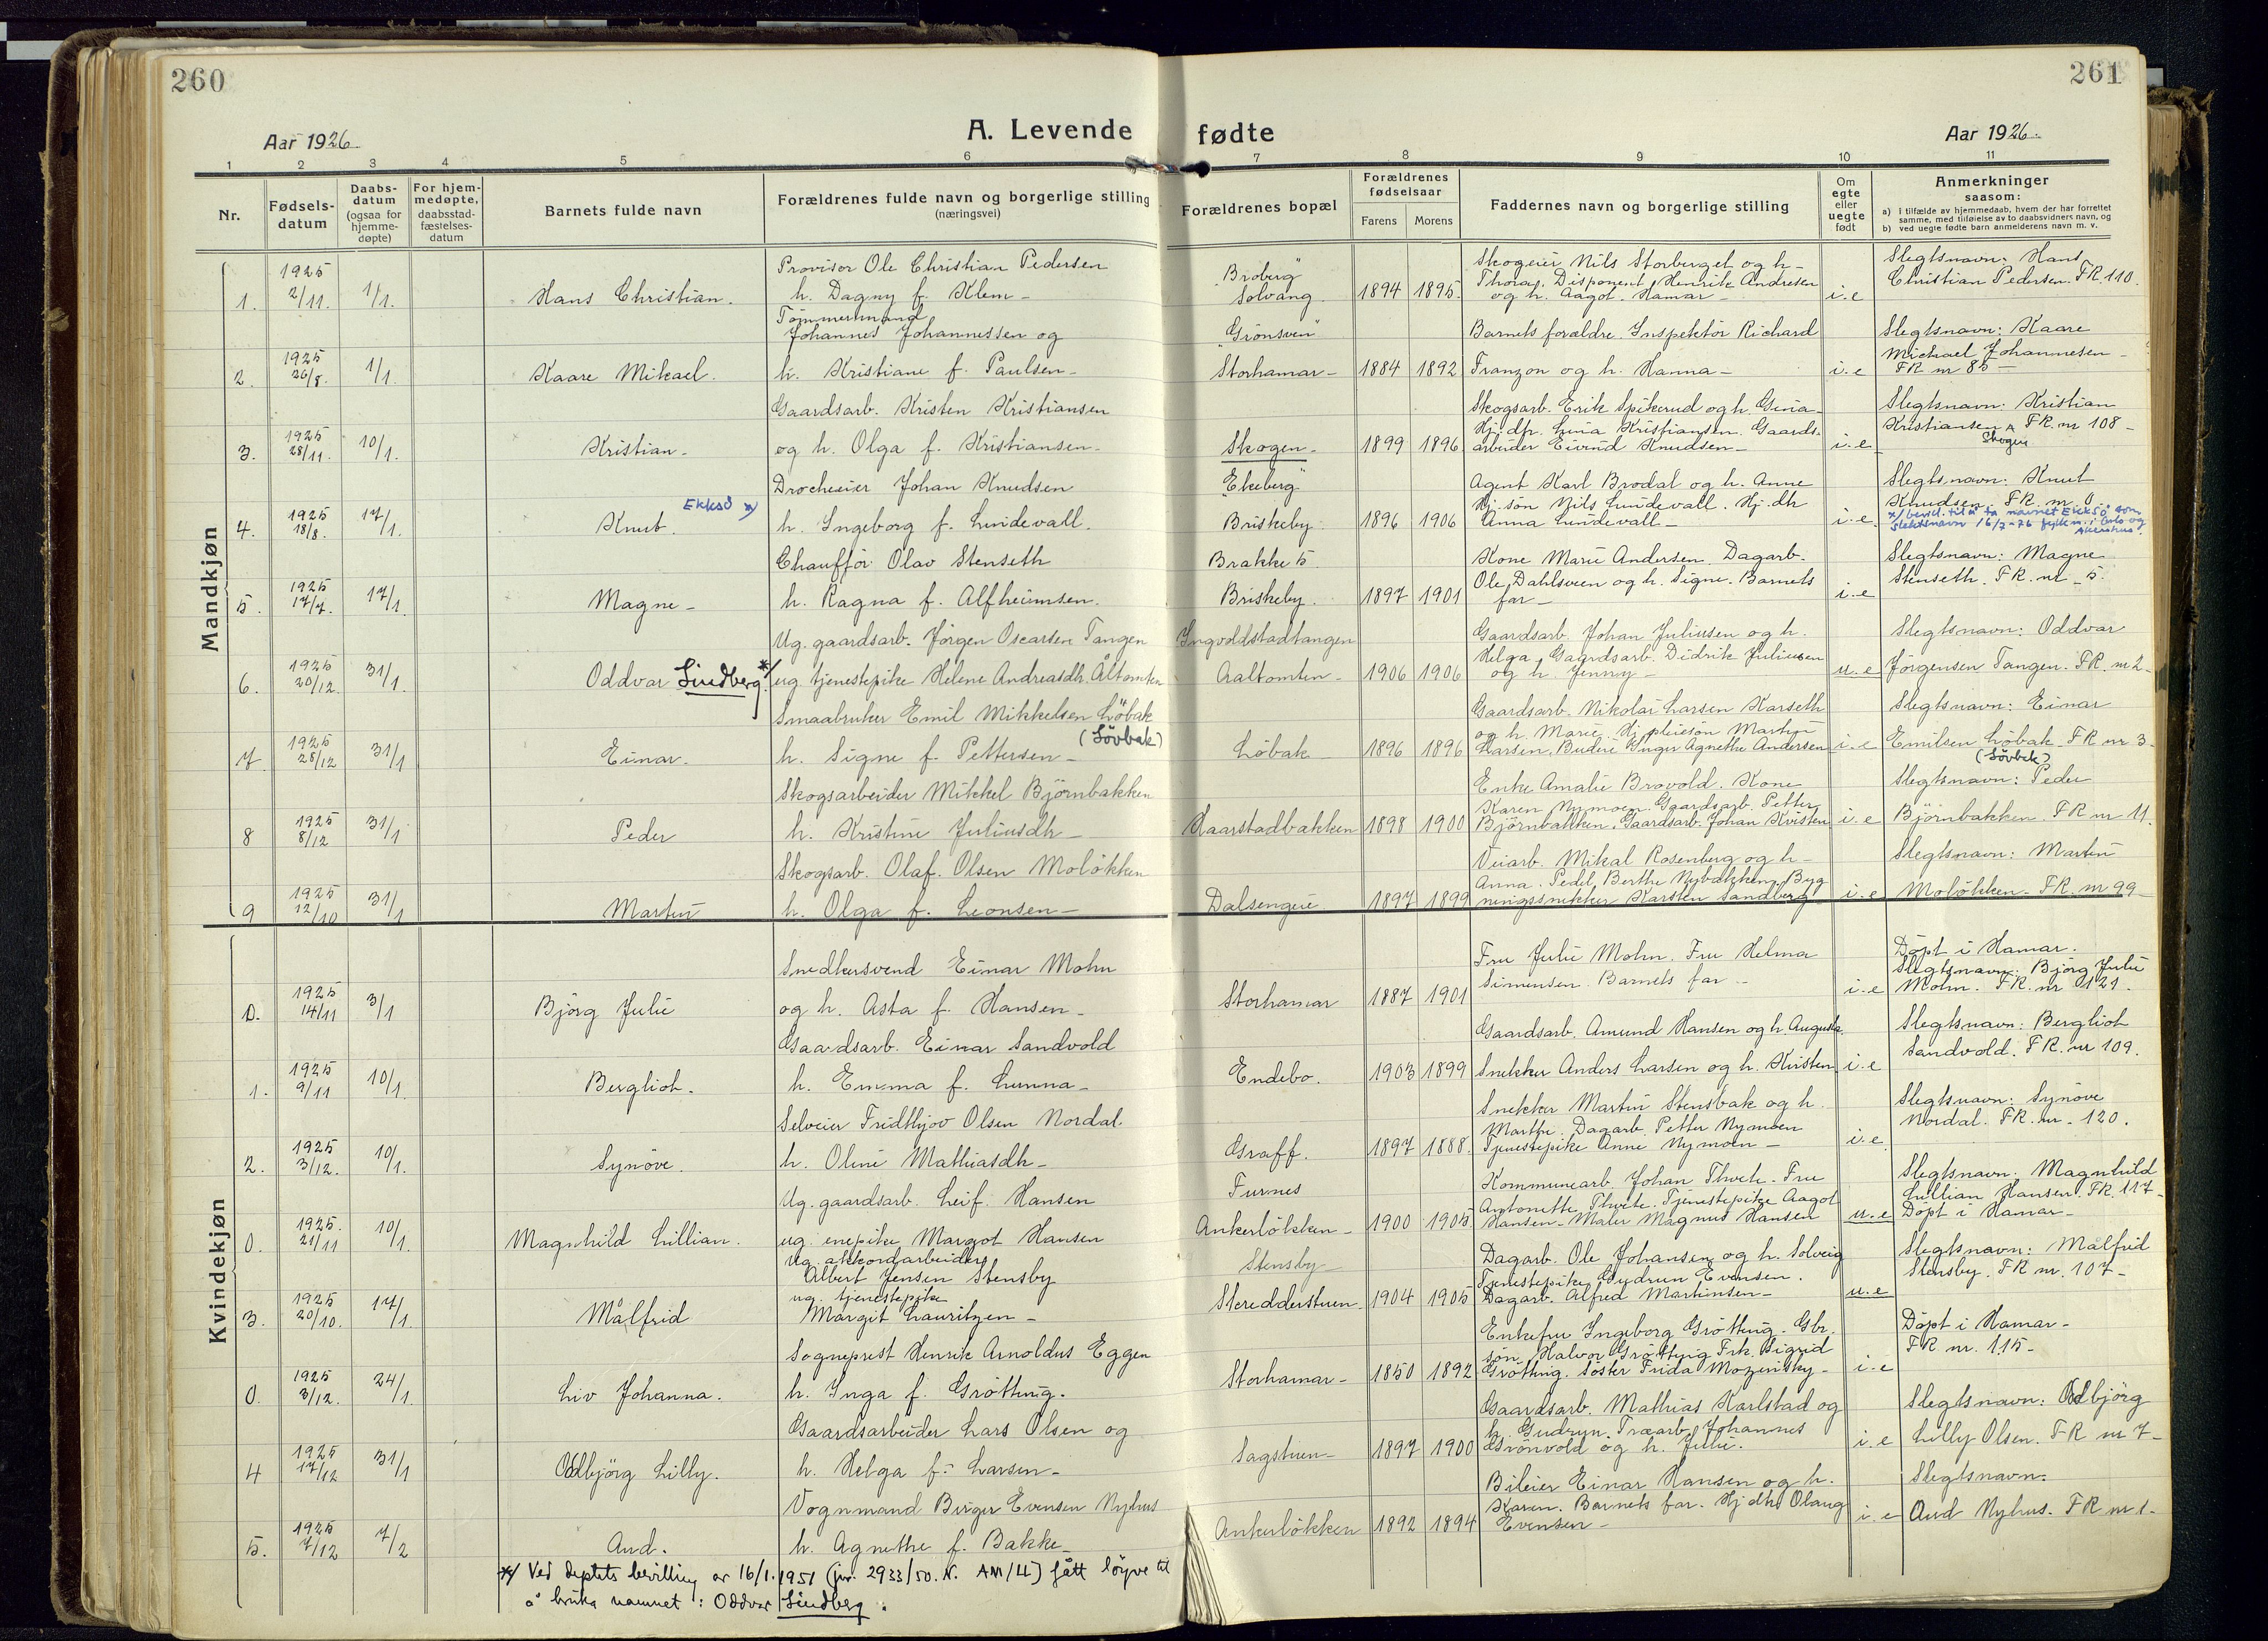 260
261
A. Levende fødte
Aar 1926
Aar 1926.
1 2 3 4 5 6 7 8 9 10 11
Nr.
Fødsels-datum
Daabs-datum (ogsaa for hjemme-døpte)
For hjem-medøpte, daabsstad-fæstelses-datum
Barnets fulde navn
Forældrenes fulde navn og borgerlige stilling (næringsvei)
Forældrenes bopæl
Forældrenes fødselsaar
Farens
Morens
Faddernes navn og borgerlige stilling
Om egte eller uegte født
Anmerkninger saasom:
a) I tilfælde av hjemmedaab, hvem der har forrettet samme, med tilføielse av to daabsvidners navn, og
b) ved uegte fødte barn anmelderens navn m. v.
Mandkjøn
1. 1925 2/11. 1/1. Hans Christian.
Provisor Ole Christian Pedersen
h. Dagny f. Klem -
"Broberg" Solvang 1894 1895.
Skogeier Nils Storberget og h-
Thora, Disponent Henrik Andresen
og h. Aagot. Hamar -
i.e
Slegtsnavn: Hans
Christian Pedersen. FR. 110.
2. 1925 26/8. 1/1. Kaare Mikael.
Tømmermand
Johannes Johannessen og
h. Kristiane f. Paulsen -
"Grönsven" Storhamar - 1884 1892
Barnets forældre. Inspektör Richard
Franzon og h. Hanna -
i.e
Slegtsnavn: Kaare
Michael Johannesen -
FR nr 85 -
3. 1925 28/11. 10/1. Kristian -
Gaardsarb. Kristen Kristiansen
og h. Olga f. Kristiansen -
Skogen - 1899 1896
Skogsarb. Erik Spikerud og h. Gina.
Hj. dh. Lina Kristiansen. Gaards-
arbeider Eivind Knudsen -
i.e
Slegtsnavn: Kristian
Kristiansen FR. nr 108 -
Skogen
4. 1925 18/8. 17/1. Knut Ekksö x)
Drocheeier Johan Knudsen
h. Ingeborg f. Lundevall.
"Ekeberg" Briskeby 1896 1906
Agent Karl Brodal og h. Anne
Hj. sön Nils Lundevall. Hj. dh
Anna Lundevall -
i.e.
Slegtsnavn: Knut
Knudsen. FR. nr
x) bevil. til å ta navnet Ekksö som
slektsnavn 16/7-26 fylkm. i Oslo og
Akershus.
5. 1925 17/7. 17/1. Magne -
Chaufför Olav Stenseth
h. Ragna f. Alfheimsen.
Brakke 5. Briskeby. 1897 1901
Kone Marie Andersen. Dagarb.
Ole Dahlsveen og h. Signe. Barnets
far -
i.e
Slegtsnavn: Magne
Stenseth. FR. nr - 5.
6. 1925 20/12. 31/1. Oddvar Lindberg. */
Ug. gaardsarb. Jörgen Oscarsen Tangen
ug. tjenestepike Helene Andreasdh. Åltomten
Ingvoldstadtangen
Aaltomten - 1906 1906
Gaardsarb. Johan Juliusen og h.
Helga, Gaardsarb. Didrik Juliusen
og h. Jenny -
u.e
Slegtsnavn: Oddvar
Jörgensen Tangen. FR. nr 2 -
7. 1925 28/12 31/1 Einar.
Smaabruker Emil Mikkelsen Löbak
(Lövbak)
h. Signe f. Pettersen -
Löbak 1896 1896
Gaardsarb. Nikolai Larsen Karseth
og h. Marie. Hj. pleiesön Martin
Larsen, Buderi Inger Agnethe Andersen
i.e
Slegtsnavn: Einar
Emilsen Löbak FR nr 3 -
(Lövbak)
8 1925 8/12 31/1 Peder
Skogsarbeider Mikkel Björnbakken
h. Kristine Juliusdh -
Haarstadbakken 1898 1900
Enke Amalie Brovold. Kone
Karen Nymoen. Gaardsarb. Petter
Björnbakken. Gaardsarb. Johan Kvisten
i.e
Slegtsnavn: Peder
Björnbakken. FR nr 11.
9 1925 12/10 31/1 Martin
Skogsarb. Olaf. Olsen Molökken
h. Olga f. Leonsen -
Dalsengeie 1897 1899
Veiarb. Mikal Rosenberg og h -
Anna. Pedel, Berthe Nybakken, Byg
ningssnekker Karsten Sandberg
i.e
Slegtsnavn: Martin
Molökken - FR. nr 99 -
Kvindekjøn
0. 1925 14/11 3/1 Björg Julie
Snedkersvend Einar Mohn
og h. Asta f. Hansen -
Storhamar 1887 1901
Fru Julie Mohn. Fru Helma
Simensen. Barnets far -
i.e
Döpt i Hamar.
Slegtsnavn: Björg Julie
Mohn. FR. nr 121.
1. 1925 9/11 10/1. Bergliot.
Gaardsarb. Einar Sandvold
h. Emma f. Lunna -
Endebo. 1903 1899
Gaardsarb. Amund Hansen og h. Augusta.
Snekker Anders Larsen og h. Kirsten
i.e
Slegtsnavn: Bergliot
Sandvold. FR. nr 109.
2. 1925 3/12. 10/1. Synöve.
Selveier Fridthjov Olsen Nordal.
h. Oline Mathiasdh -
Graff. 1897 1888.
Snekker Martin Stensbak og h.
Marthe. Dagarb. Petter Nymoen
Tjenestepike Anne Nymoen -
i.e
Slegtsnavn: Synöve
Nordal. FR. nr. 120.
0. 1925. 21/11 10/1. Magnhild Lillian.
Ug. gaardsarb. Leif. Hansen
ug. enepike Margot Hansen
Furnes
Ankerlökken - 1900 1905
Kommunearb. Johan Thvete. Fru
Antonette Thvete. Tjenestepike Aagot
Hansen - Maler Magnus Hansen
u.e
Slegtsnavn. Magnhild
Lillian Hansen. FR. 117 -
Döpt i Hamar -
3. 1925 20/10. 17/1. Målfrid
Ug. akkordarbeider
Albert Jensen Stensby
ug. tjenestepike
Margit Lauritzen -
Stensby -
Skredderstuen 1904 1905
Dagarb. Ole Johansen og h. Solveig
Tjenestepike Gudrun Evensen.
Dagarb. Alfred Martinsen -
u.e
Slegtsnavn: Målfrid
Stensby. FR nr. 107 -
0. 1925 3/12. 24/1. Liv Johanna.
Sogneprest Henrik Arnoldus Eggen
h. Inga f. Gröttung.
Storhamar - 1850 1892
Enkefru Ingeborg Gröttung. Gbr.
sön Halvor Gröttung Frk. Sigrid
Gröttung. Söster Frida Mozensky -
i.e
Döpt i Hamar -
FR nr. 115 -
4 1925 17/12 31/1 Oddbjörg Lilly.
Gaardsarbeider Lars Olsen og
h. Helga f. Larsen -
Sagstuen - 1897 1900
Gaardsarb. Mathias Karlstad og
h. Gudrun. Træarb. Johannes
Grönvold og h. Julie.
i.e
Slegtsnavn: Oddbjörg
Lilly Olsen. FR nr 7 -
5. 1925 7/12 7/2 Aud.
Vognmand Birger Evensen Nyhus
h. Agnethe f. Bakke -
Ankerlökken 1892 1894
Bileier Einar Hansen og h.
Karen. Barnets far. Hj dh. Olaug
Evensen -
i.e
Slegtsnavn:
Aud Nyhus. FR nr 1 -
*/ Ved deptets bevilling av 16/1.1951 (jnr. 2933/50. N. AM/LL) fått löyve til
å bruka namnet: Oddvar Lindberg.